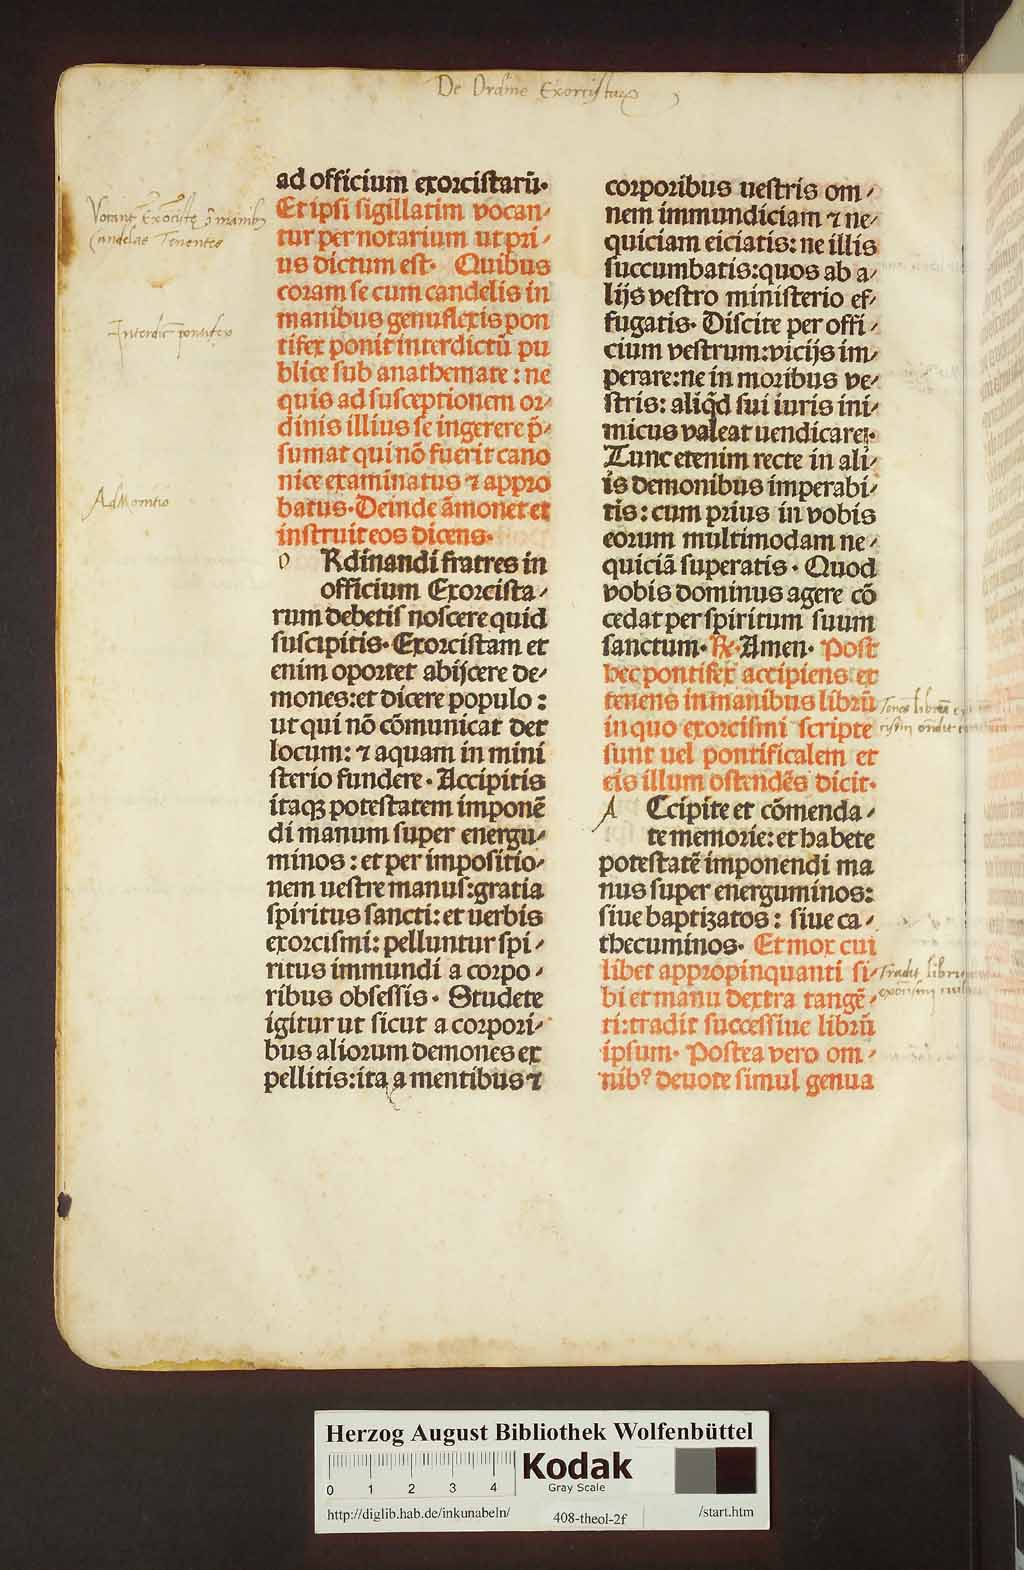 De Ordine Exorcistarꝝ
ad officium exorcistarū.
Et ipsi sigillatim vocan⸗
tur per notarium ut pri⸗
us dictum est. Quibus
coram se cum candelis in
manibus genuflexis pon
tifex ponit interdictū pu
blice sub anathemate : ne
quis ad susceptionem or⸗
dinis illius se ingerere p̄⸗
sumat qui nō fuerit cano
nice examinatus ⁊ appro
batus. Deinde āmonet et
instruit eos dicens.
o Rdinandi fratres in
officium Exorcista⸗
rum debetis noscere quid
suscipitis. Exorcistam et
enim oportet abijcere de⸗
mones: et dicere populo :
ut qui nō cōmunicat det
locum: ⁊ aquam in mini
sterio fundere. Accipitis
itaqꝫ potestatem imponē
di manum super energu⸗
minos : et per impositio⸗
nem uestre manus: gratia
spiritus sancti: et uerbis
exorcismi: pelluntur spi⸗
ritus immundi a corpo⸗
ribus obsessis. Studete
igitur ut sicut a corpori⸗
bus aliorum demones ex
pellitis: ita a mentibus ⁊
corporibus uestris om⸗
nem immundiciam ⁊ ne⸗
quiciam eiciatis: ne illis
succumbatis: quos ab a⸗
lijs vestro ministerio ef⸗
fugatis. Discite per offi⸗
cium vestrum: vicijs im⸗
perare: ne in moribus ve⸗
stris: aliq̄d sui iuris ini⸗
micus valeat uendicare.
Tunc etenim recte in ali⸗
is demonibus imperabi⸗
tis: cum prius in vobis
eorum multimodam ne⸗
quiciā superatis. Quod
vobis dominus agere cō
cedat per spiritum suum
sanctum. ℞. Amen. Post
hec pontifex accipiens et
tenens in manibus librū
in quo exorcismi scripte
sunt uel pontificalem et
eis illum ostendēs dicit.
A Ccipite et cōmenda⸗
te memorie: et habete
potestatē imponendi ma
nus super energuminos:
siue baptizatos : siue ca⸗
thecuminos. Et mox cui
libet appropinquanti si⸗
bi et manu dextra tangē⸗
ti: tradit successiue librū
ipsum. Postea vero om⸗
nibꝰ deuote simul genua
Vocant Exorcistę ī manibꝫ
Candelas Tenentes
Interdic̄ pontifex
AdMonitio
Tenēs librū
Tradit librū
Herzog August Bibliothek Wolfenbüttel
0 1 2 3 4
Kodak
Gray Scale
http://diglib.hab.de/inkunabeln/ 408-theol-2f /start.htm